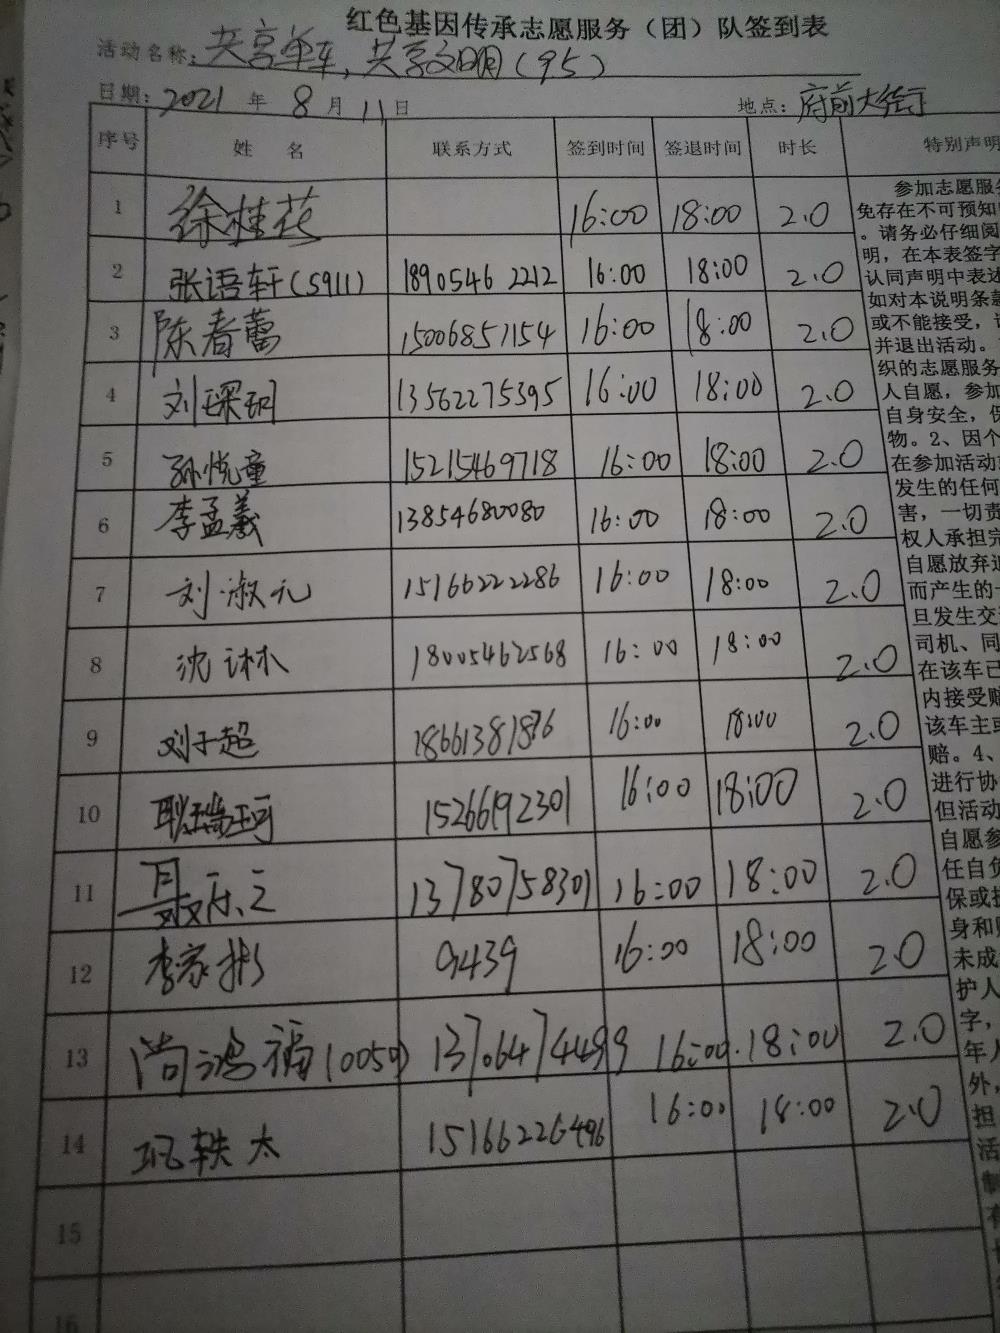 红色基因传承志愿服务(团)队签到表
活动名称：共享单车，共享文明(95)
日期：2021 年 8 月 11 日 地点：府前大街
序号 姓 名 联系方式 签到时间 签退时间 时长 特别声明
1 徐桂花 16:00 18:00 2.0
2 张语轩(5911) 18905462212 16:00 18:00 2.0
3 陈春蕾 15006851154 16:00 18:00 2.0
4 刘琛玥 13562275395 16:00 18:00 2.0
5 孙悦童 15215469718 16:00 18:00 2.0
6 李孟羲 13854680080 16:00 18:00 2.0
7 刘淑元 15166222286 16:00 18:00 2.0
8 沈 18005462568 16:00 18:00 2.0
9 刘子超 18661381876 16:00 18:00 2.0
10 耿瑞珂 15266192301 16:00 18:00 2.0
11 13780758301 16:00 18:00 2.0
12 李家彬 9439 16:00 18:00 2.0
13 尚鸿福(0059) 13706474499 16:00 18:00 2.0
14 轶太 15166226496 16:00 18:00 2.0
15
16
参加志愿服务
免存在不可预知
。请务必仔细阅
明，在本表签字
认同声明中表述
如对本说明条款
或不能接受，
并退出活动。
织的志愿服务
人自愿，参加
自身安全，保
物。2、因个
在参加活动
发生的任何
害，一切责
权人承担完
自愿放弃追
而产生的一
旦发生交
司机、同
在该车已
内接受赔
该车主或
赔。4、
进行协
但活动
自愿参
任自负
保或
身和
未成
护人
字，
年人
外，
担
活
制